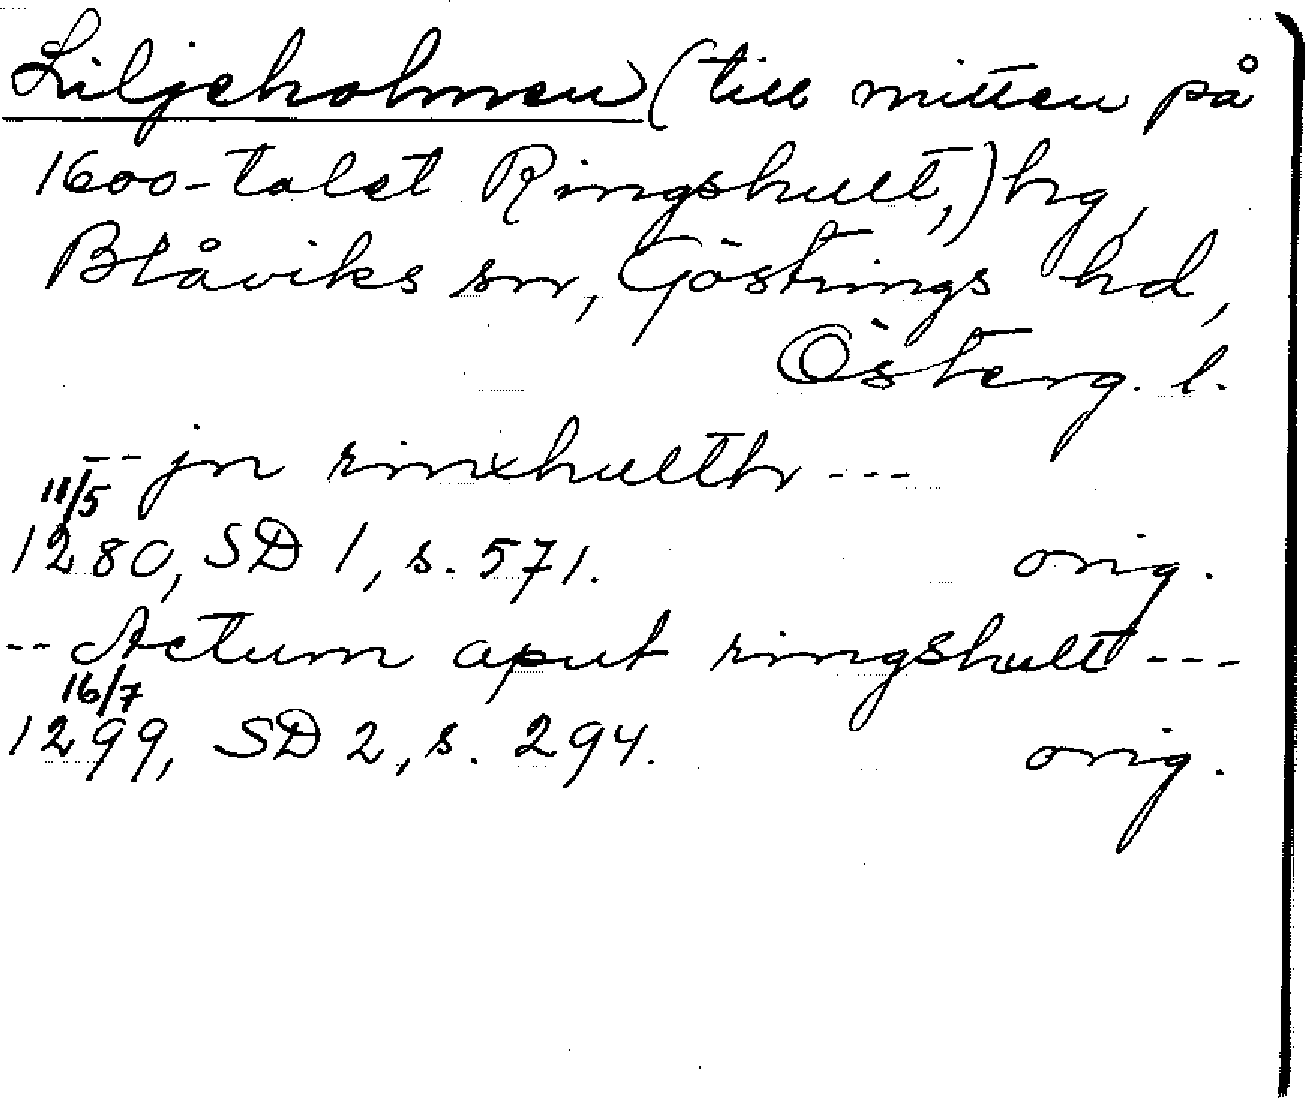 Liljeholmen (till mitten på
1600-talet Ringshult,) hg,
Blåviks sn, Göstrings hd,
Österg. l.
--- jn rinxhulth ---
11/5
1280, SD 1, s. 571. orig.
-- Actum aput ringshult ---
16/7
1299, SD 2, s. 294. orig.